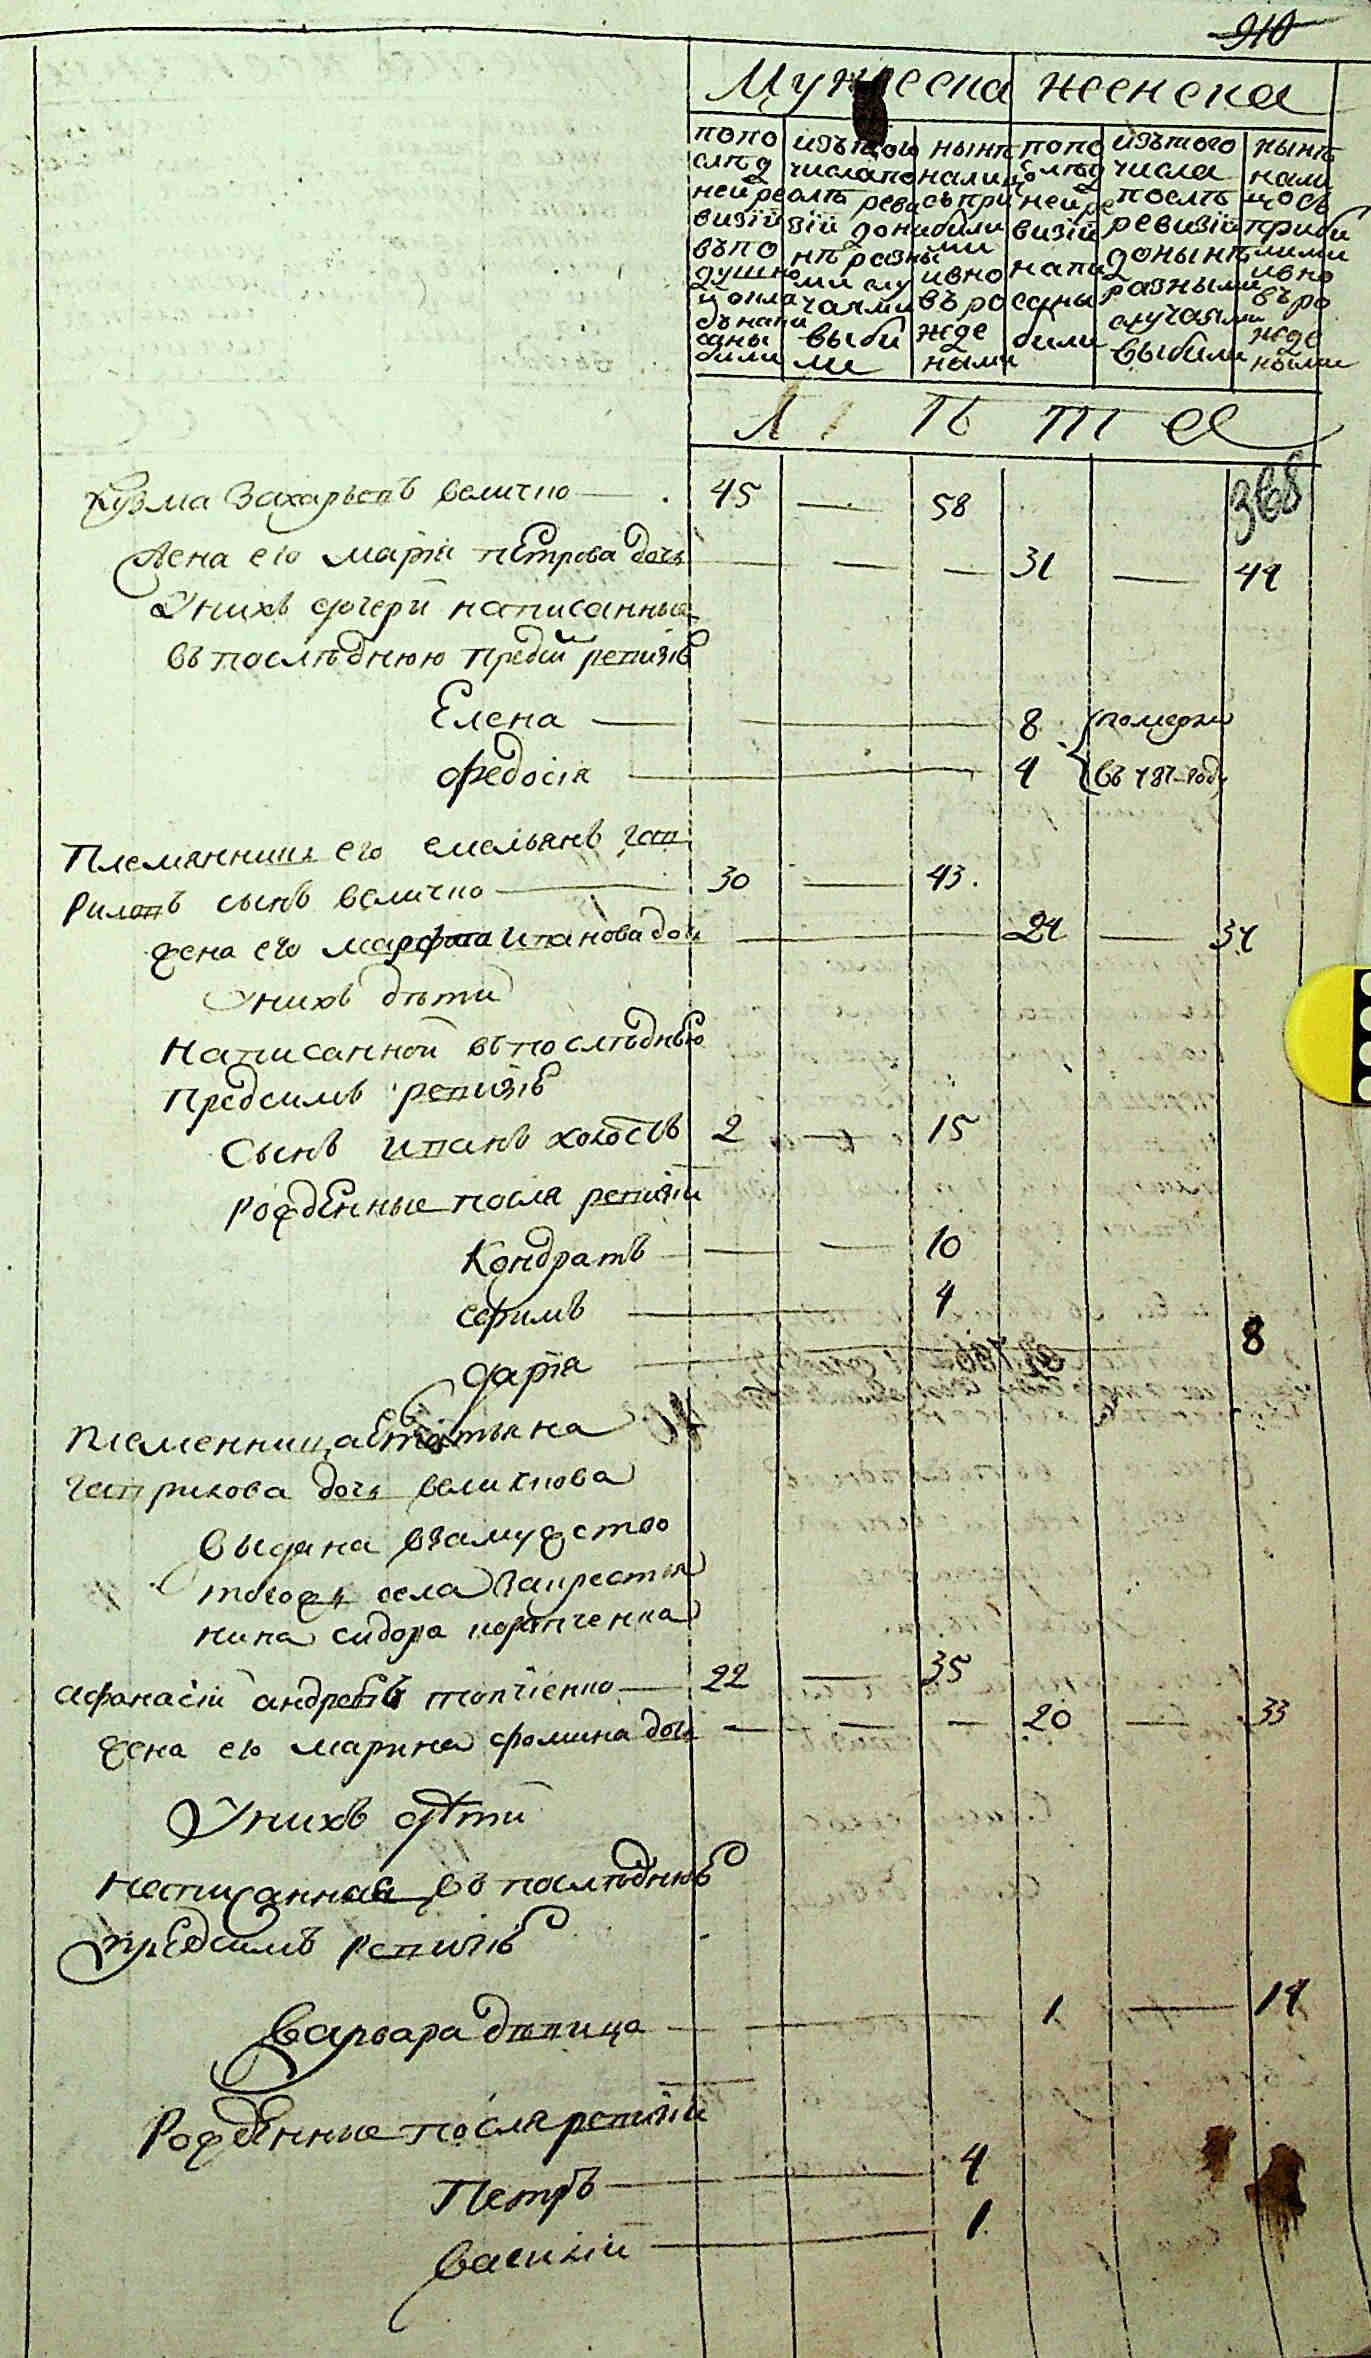 910
Мужеска женска
попо слѣд ней ре визіи въпо душно у окла дѣ напи саны били
изътого числа по слѣ реви зіи до ни нѣ разны ми слу чаями выби ли
нынѣ налицо съ при били ми ивно въ ро жде ными
попо слѣд ней ре визіи напи саны били
изътого числа послѣ ревизіи донынѣ разными случаями выбили
нынѣ нали цось приби лими ивно въ ро жде ными
Лѣта
368
Кузма Захарьевъ величко — 45 — 58
жена его марія пЕтрова дочь — — — 31 — 44
Унихъ дочери написанные
въ послѣднюю предсй ревизіѣ
Елена — 8 померли
Ѳедосія — 4 въ 787 году
Племянникъ его емельянъ гав
риловъ сынъ величко — 30 — 43.
жена его марфа иванова дочь — 24 — 34
Унихъ дѣти
написанной въ послѣднѣю
предсимъ ревизіѣ
Сынъ иванъ холостъ 2 — 15
рождЕнные посля ревизіи
Кондратъ — — 10
ефимъ — 4
дарія — 8
племенница Татьяна
гаврилова дочь величкова
выдана взамужство
тогожъ села закрестья
нина сидора
афанасій андреевъ топчіенко — 22 — 35
жена его марина фомина дочь — — — 20 — 33
Унихъ дѣти
написанная въ послѣднюѣ
прЕдсимъ ревизіѣ
варвара дѣвица — 1 — 14
РождЕнные посля ревизіи
Петръ — 4
василій — 1